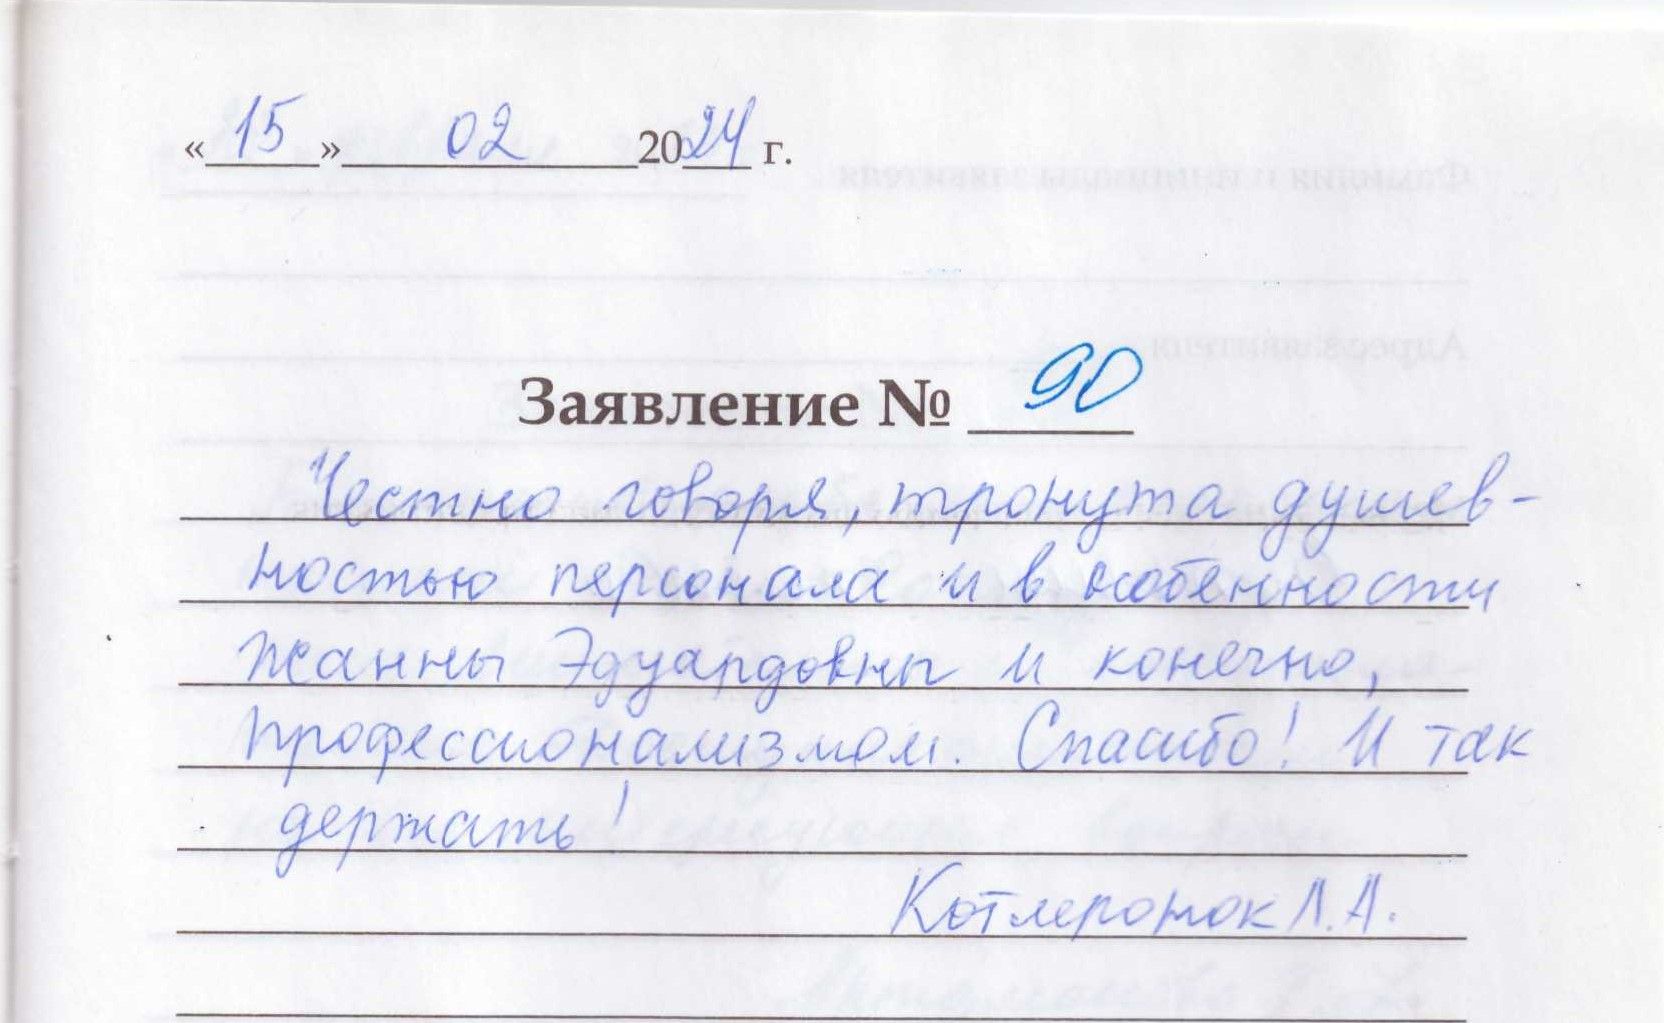 «15» 02 2024 г.
Заявление № 90
Честно говоря, тронута душев-
ностью персонала и в особенности
Жанны Эдуардовны и конечно,
профессионализмом. Спасибо! И так
держать!
Л.А.